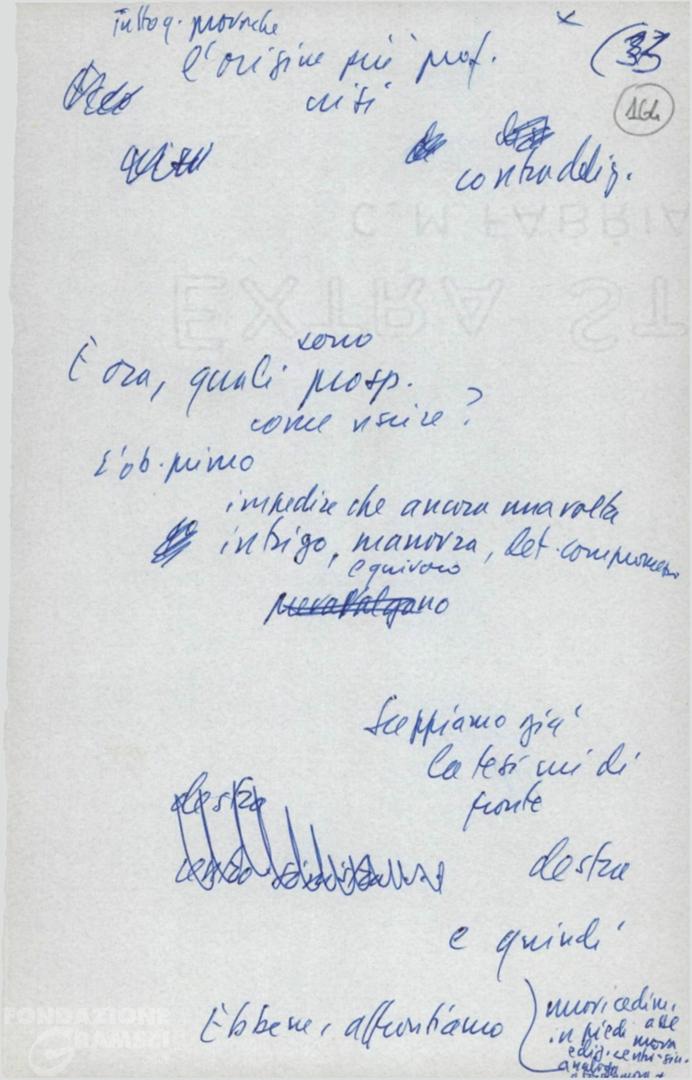 tutto q. provoche
l'origine più prof.
crisi
33
164
contraddiz.
C. M. FABRIA
EXTRA ST
E ora, quali sono prosp.
come uscire?
L'ob. primo
impedire che ancora una volta
intrigo, manovra, det. compromesso
equivoco
prevalgano
Sappiamo già
la tesi cui di
fronte
destra
destra
centro
e quindi
Ebbene, affrontiamo
nuovi cedim.
in piedi alla
nuova
ediz. centro-sin.
FONDAZIONE
GRAMSCI